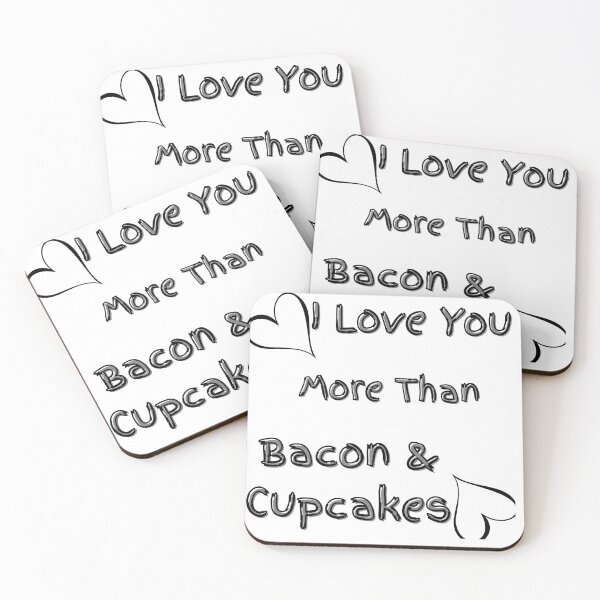 I Love You
More Than
I Love You
More Than
Bacon &
I Love You
More Than
Bacon &
Cupcakes
I Love You
More Than
Bacon &
Cupcakes